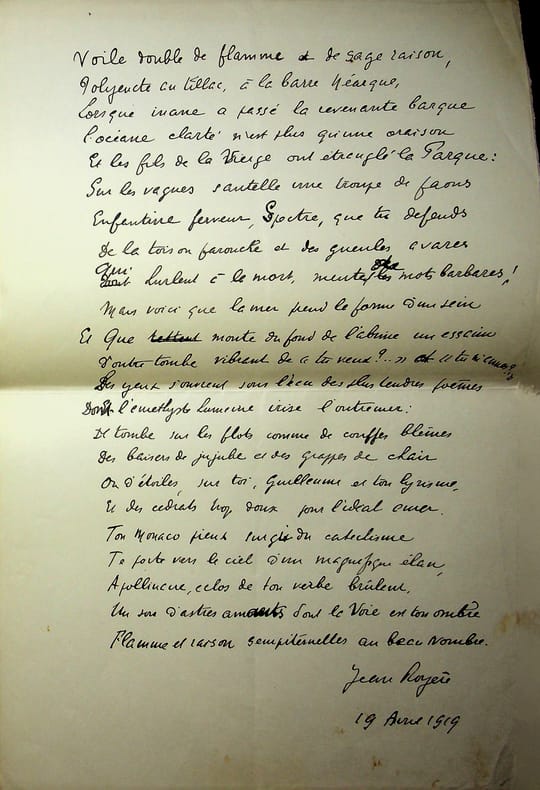 Voile double de flamme et de sage raison,
Polyeucte au tillac, à la barre Néarque,
Lorsque inane a passé la revenante barque
L'océane clarté n'est plus qu'une oraison
Et les fils de la Vierge ont étranglé la Parque :
Sur les vagues sautelle une troupe de faons
Enfantine ferveur, Spectre, que tu défends
De la toison farouche et des gueules avares
Qui hurlent à la mort, mots barbares !
Mais voici que la mer prend la forme d'un sein
Et Que monte du fond de l'abîme un essaim
D'outre tombe vibrant de « tu veux ?.. » et « tu m'aimes ? »
Des yeux s'ouvrent sous l'eau des plus tendres poèmes
Dont l'améthyste lumière irise l'outremer :
Il tombe sur les flots comme de touffes blêmes
Des baisers de jujube et des grappes de chair
Ou d'étoiles sur toi, Guillaume et ton lyrisme,
Et des cédrats trop doux pour l'idéal amer.
Ton Monaco pieux surgi du catéchisme
Te porte vers le ciel d'un magnifique élan,
Apollinaire, éclos de ton verbe brûlant,
Un son d'astres amants dont la Voie est ton ombre
Flamme et raison sempiternelles au beau Nombre.
Jean Royère
19 Avril 1919